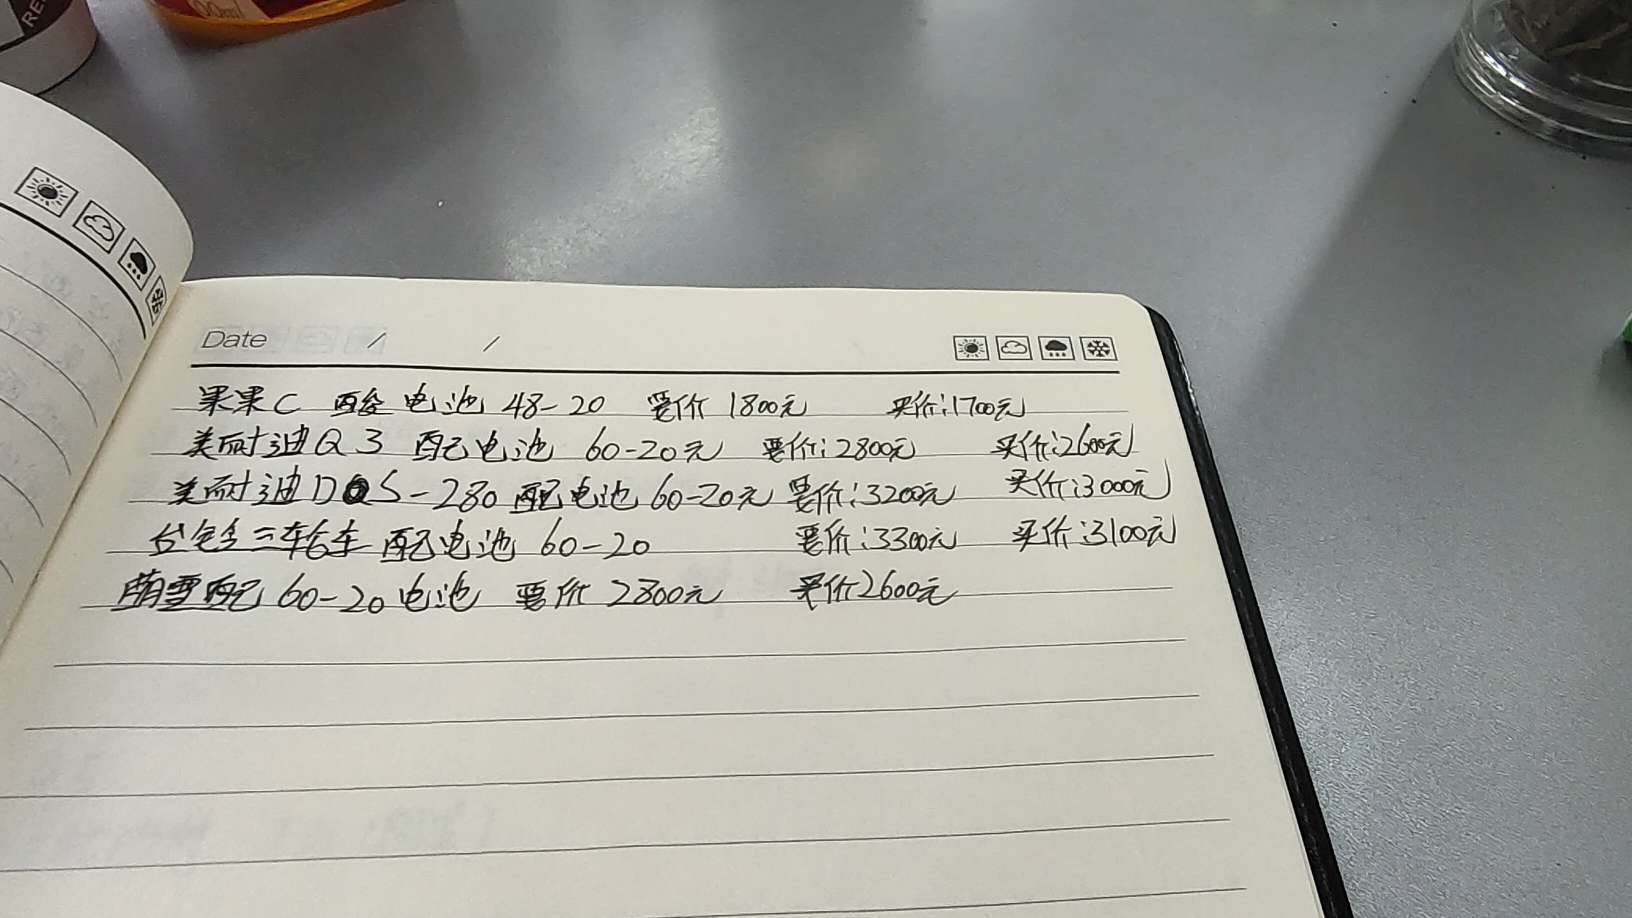 RE
00ml
Date / /
果果C 酸 电池 48-20 要价 1800元 买价:1700元
美耐迪Q3 配电池 60-20元 要价:2800元 买价:2600元
美耐迪DQS-280 配电池 60-20元 要价:3200元 买价:3000元
三轮车 配电池 60-20 要价:3300元 买价:3100元
萌雪配 60-20电池 要价 2800元 买价2600元